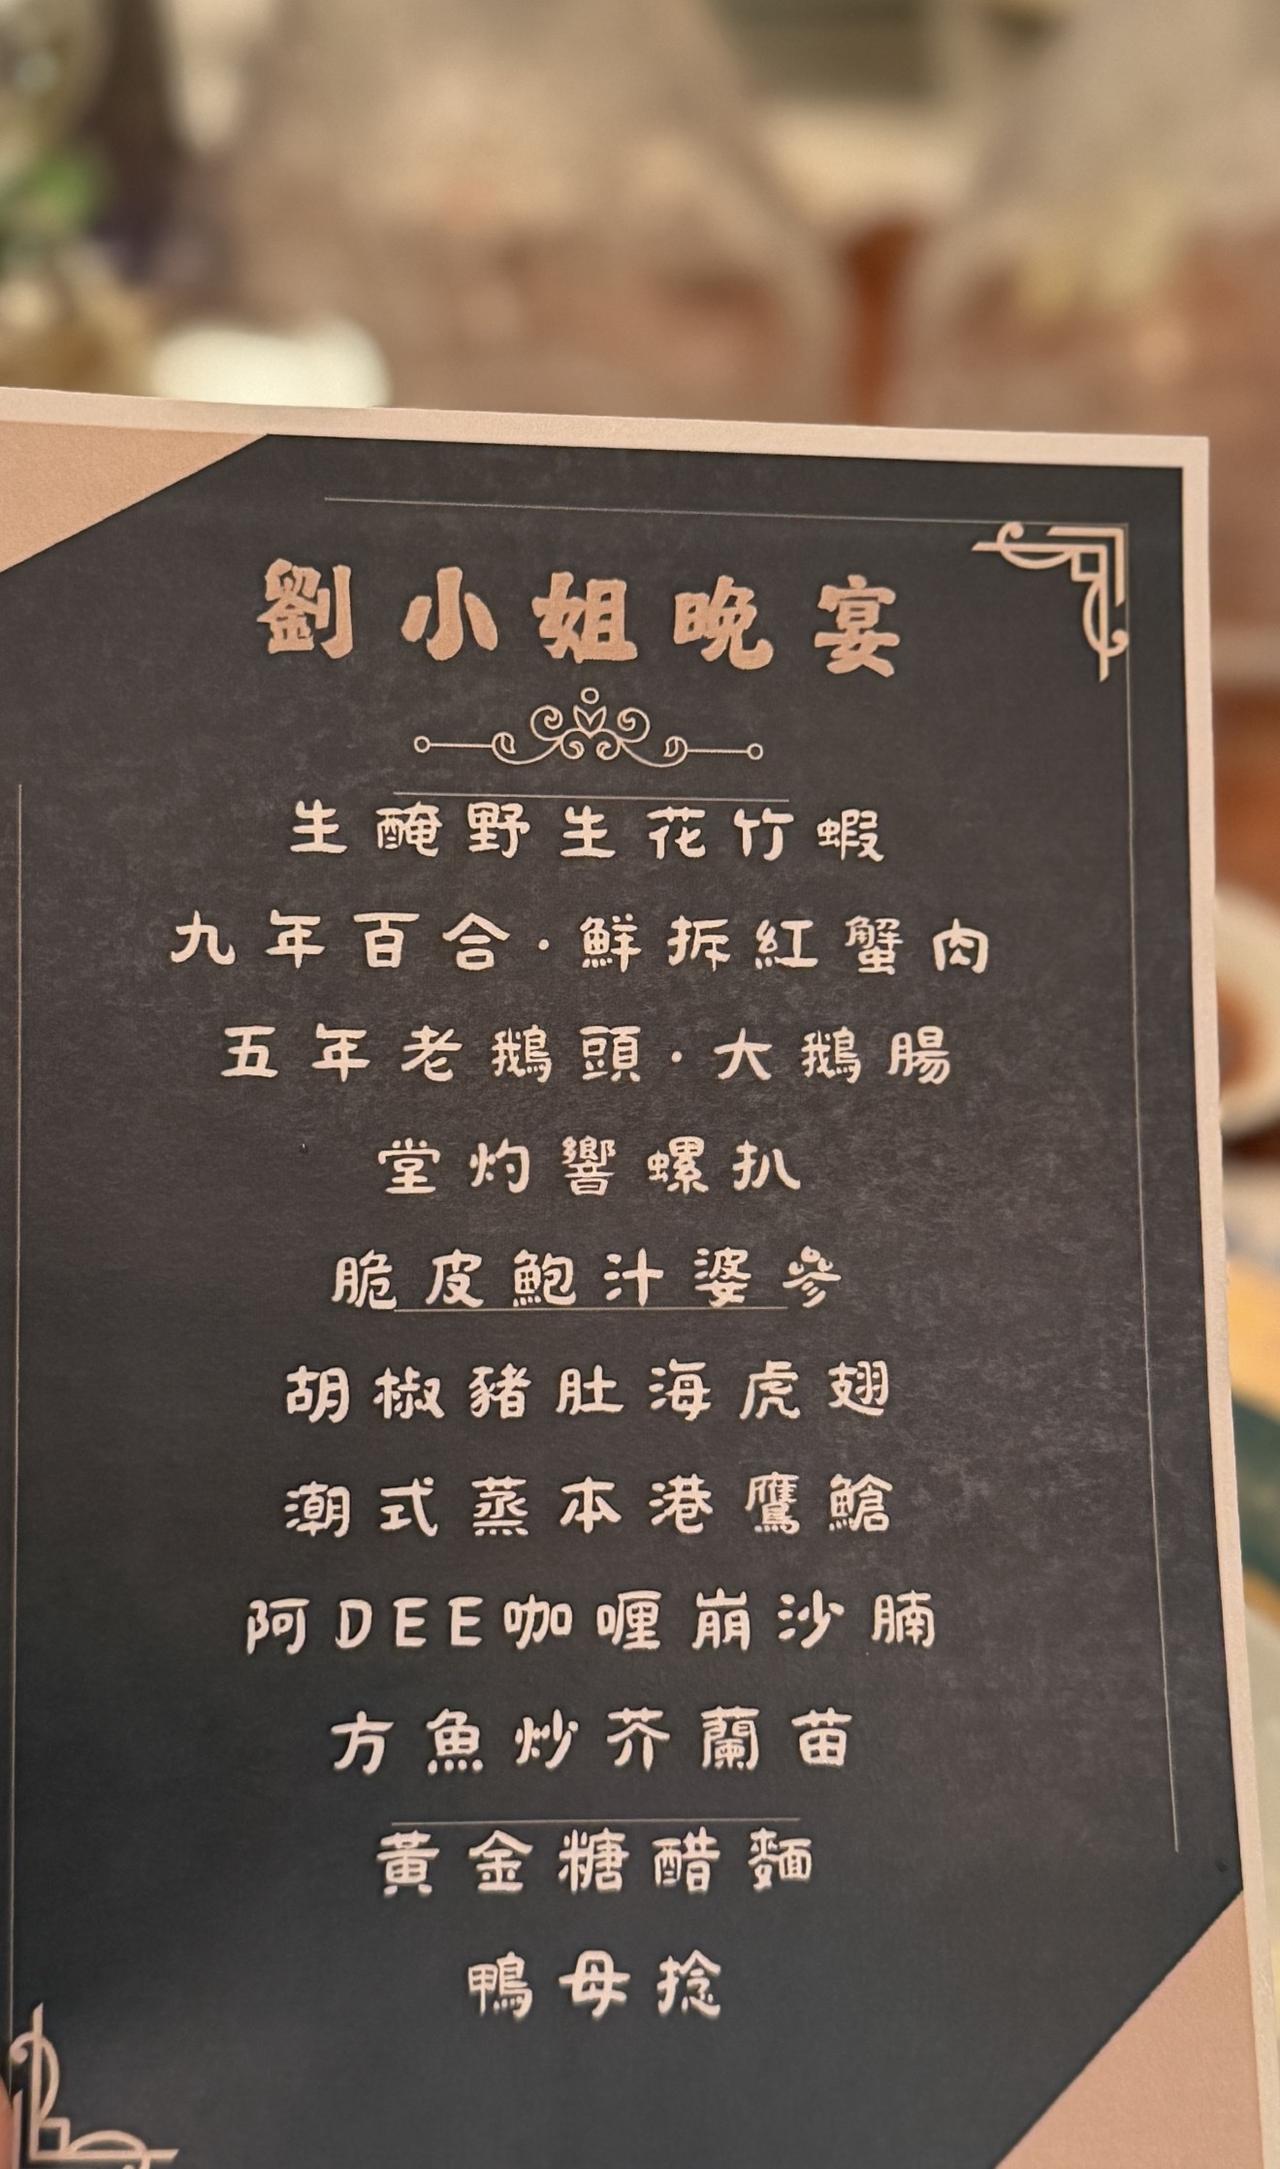 劉小姐晚宴
生醃野生花竹蝦
九年百合·鮮拆紅蟹肉
五年老鵝頭·大鵝腸
堂灼響螺扒
脆皮鮑汁婆參
胡椒豬肚海虎翅
潮式蒸本港鷹鯧
阿DEE咖喱崩沙腩
方魚炒芥蘭苗
黃金糖醋麵
鴨母捻